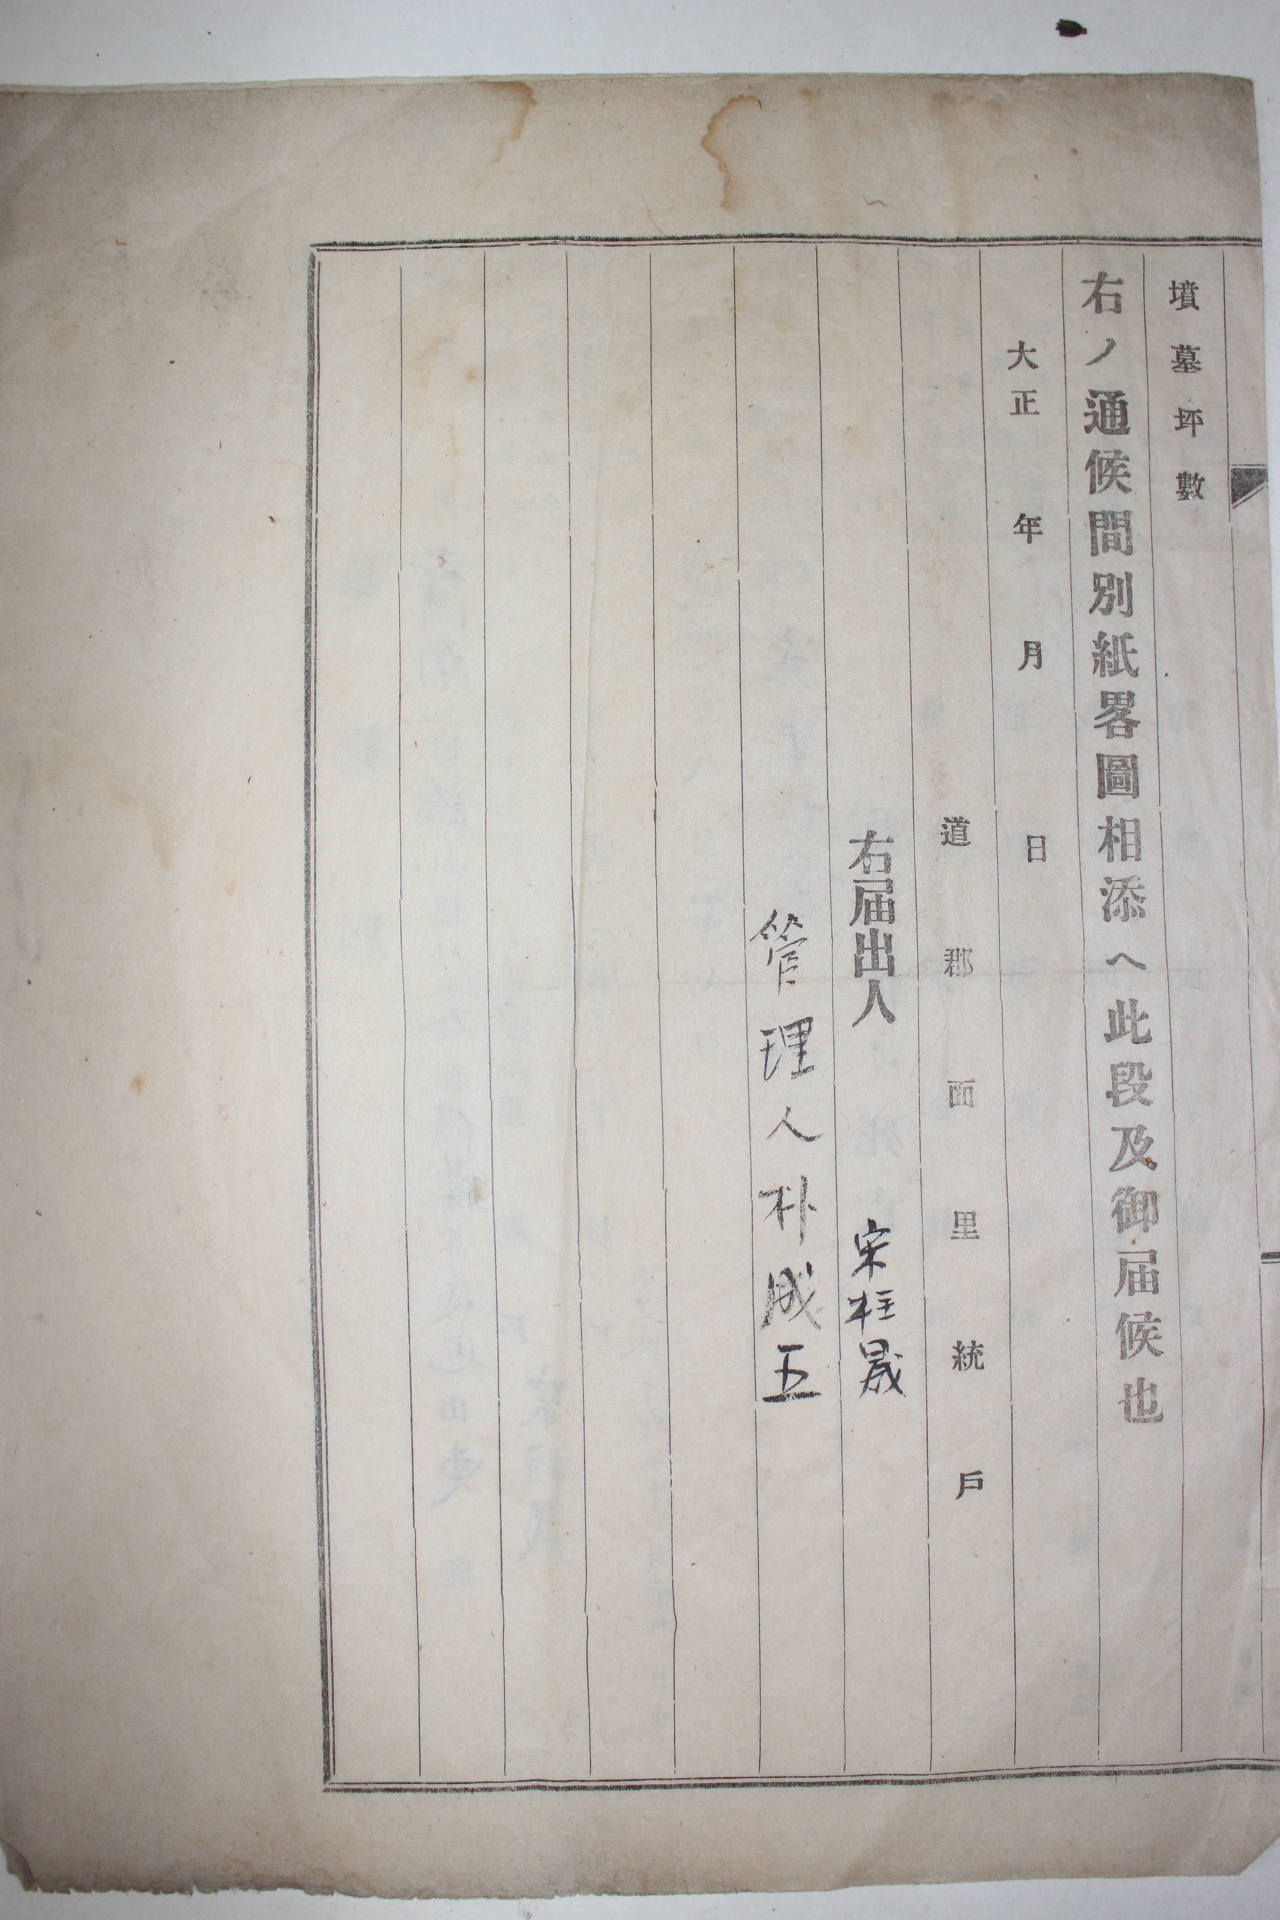 墳墓坪數
右ノ通候間別紙畧圖相添ヘ此段及御届候也
大正 年 月 日
道 郡 面 里 統 戶
右届出人 宋柱晟
管理人 朴成五